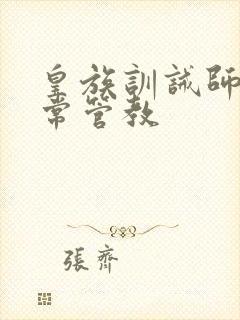 皇族訓誡師
常管教
張齊